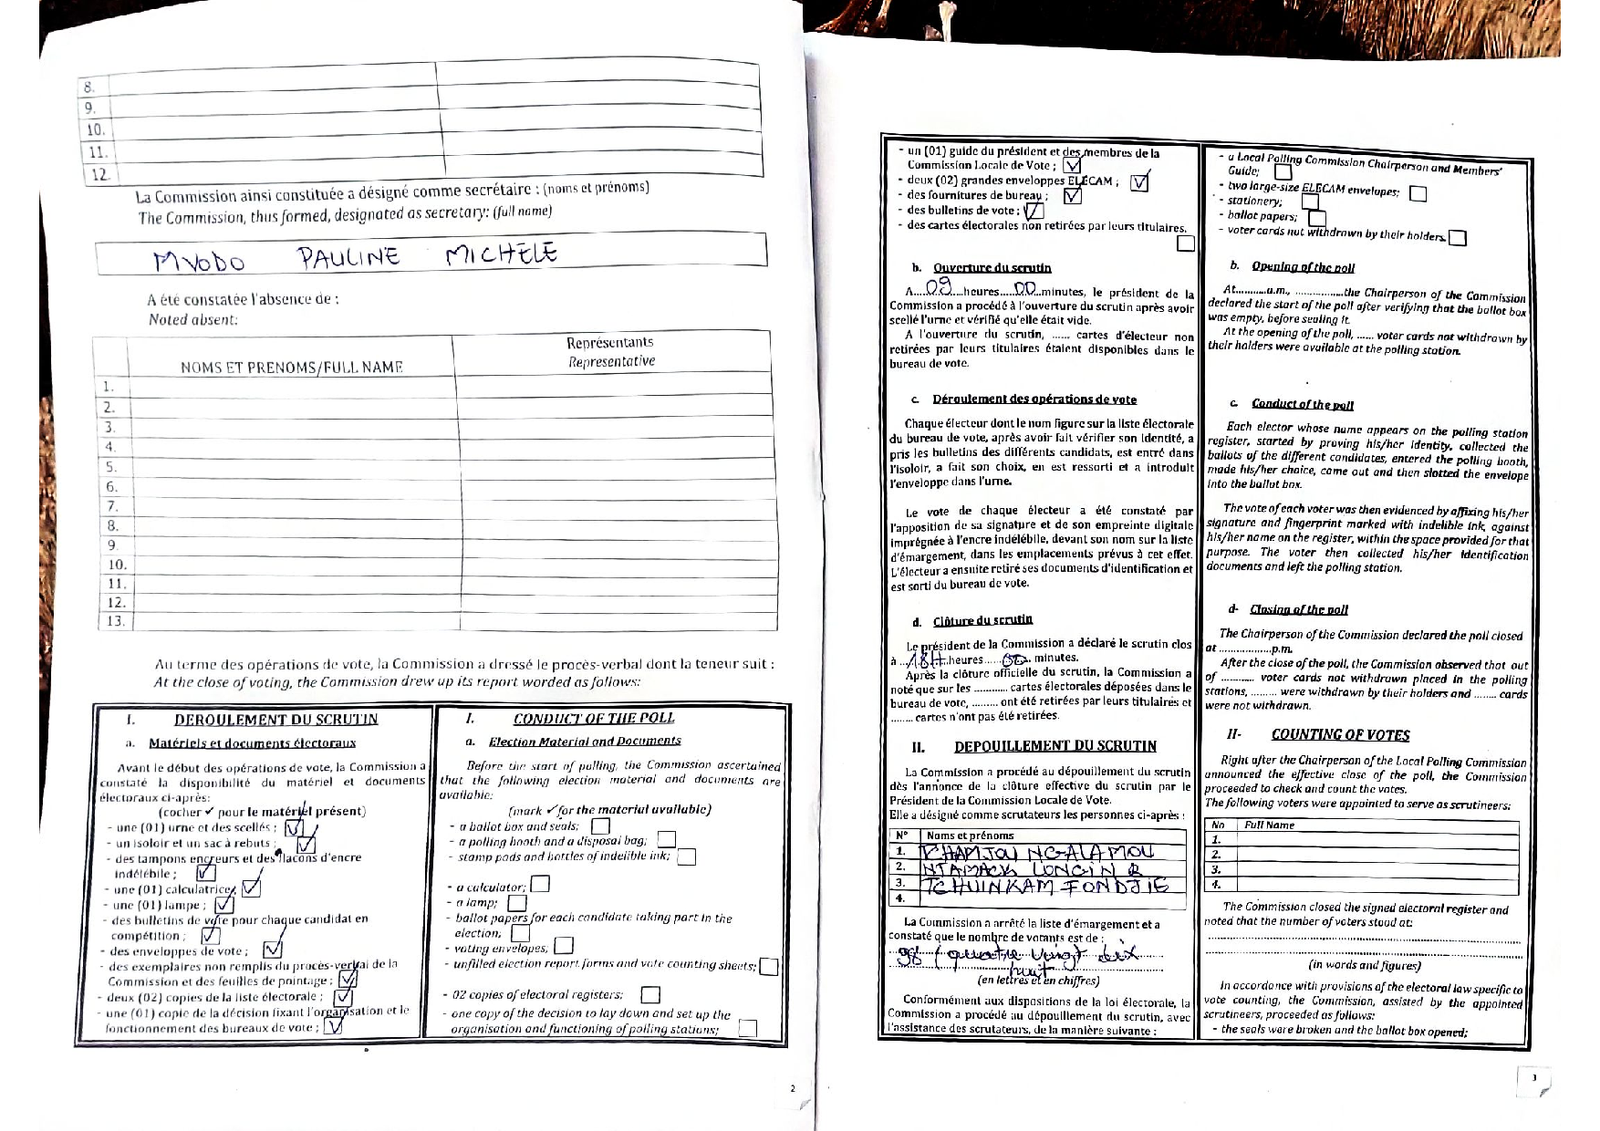 8.
9.
10.
11.
12.
La Commission ainsi constituée a désigné comme secrétaire : (noms et prénoms)
The Commission, thus formed, designated as secretary: (full name)
MVODO PAULINE MICHELE
A été constatée l'absence de :
Noted absent:
NOMS ET PRENOMS/FULL NAME
Représentants
Representative
1.
2.
3.
4.
5.
6.
7.
8.
9.
10.
11.
12.
13.
Au terme des opérations de vote, la Commission a dressé le procès-verbal dont la teneur suit :
At the close of voting, the Commission drew up its report worded as follows:
I. DEROULEMENT DU SCRUTIN
a. Matériels et documents électoraux
Avant le début des opérations de vote, la Commission a
constaté la disponibilité du matériel et documents
électoraux ci-après:
(cocher ✓ pour le matériel présent)
- une (01) urne et des scellés ;
- un isoloir et un sac à rebuts ;
- des tampons encreurs et des flacons d'encre
indélébile ;
- une (01) calculatrice;
- une (01) lampe ;
- des bulletins de vote pour chaque candidat en
compétition ;
- des enveloppes de vote ;
- des exemplaires non remplis du procès-verbal de la
Commission et des feuilles de pointage ;
- deux (02) copies de la liste électorale ;
- une (01) copie de la décision fixant l'organisation et le
fonctionnement des bureaux de vote ;
I. CONDUCT OF THE POLL
a. Election Material and Documents
Before the start of polling, the Commission ascertained
that the following election material and documents are
available:
(mark ✓ for the material available)
- a ballot box and seals;
- a polling booth and a disposal bag;
- stamp pads and bottles of indelible ink;
- a calculator;
- a lamp;
- ballot papers for each candidate taking part in the
election;
- voting envelopes;
- unfilled election report forms and vote counting sheets;
- 02 copies of electoral registers;
- one copy of the decision to lay down and set up the
organisation and functioning of polling stations;
2
- un (01) guide du président et des membres de la
Commission Locale de Vote ;
- deux (02) grandes enveloppes ELECAM ;
- des fournitures de bureau ;
- des bulletins de vote ;
- des cartes électorales non retirées par leurs titulaires.
b. Ouverture du scrutin
A....09....heures....00....minutes, le président de la
Commission a procédé à l'ouverture du scrutin après avoir
scellé l'urne et vérifié qu'elle était vide.
A l'ouverture du scrutin, ...... cartes d'électeur non
retirées par leurs titulaires étaient disponibles dans le
bureau de vote.
c. Déroulement des opérations de vote
Chaque électeur dont le nom figure sur la liste électorale
du bureau de vote, après avoir fait vérifier son identité, a
pris les bulletins des différents candidats, est entré dans
l'isoloir, a fait son choix, en est ressorti et a introduit
l'enveloppe dans l'urne.
Le vote de chaque électeur a été constaté par
l'apposition de sa signature et de son empreinte digitale
imprégnée à l'encre indélébile, devant son nom sur la liste
d'émargement, dans les emplacements prévus à cet effet.
L'électeur a ensuite retiré ses documents d'identification et
est sorti du bureau de vote.
d. Clôture du scrutin
Le président de la Commission a déclaré le scrutin clos
à ..18H..heures......00.. minutes.
Après la clôture officielle du scrutin, la Commission a
noté que sur les ........... cartes électorales déposées dans le
bureau de vote, ......... ont été retirées par leurs titulaires et
........ cartes n'ont pas été retirées.
II. DEPOUILLEMENT DU SCRUTIN
La Commission a procédé au dépouillement du scrutin
dès l'annonce de la clôture effective du scrutin par le
Président de la Commission Locale de Vote.
Elle a désigné comme scrutateurs les personnes ci-après :
N° Noms et prénoms
1. NGALAMOU
2. NTAMACK LONGIN R
3. TCHUINKAM FONDJIE
4.
La Commission a arrêté la liste d'émargement et a
constaté que le nombre de votants est de :
98 (quatre vingt dix
huit)
(en lettres et en chiffres)
Conformément aux dispositions de la loi électorale, la
Commission a procédé au dépouillement du scrutin, avec
l'assistance des scrutateurs, de la manière suivante :
- a Local Polling Commission Chairperson and Members'
Guide;
- two large-size ELECAM envelopes;
- stationery;
- ballot papers;
- voter cards not withdrawn by their holders.
b. Opening of the poll
At...........a.m., ..................the Chairperson of the Commission
declared the start of the poll after verifying that the ballot box
was empty, before sealing it.
At the opening of the poll, ...... voter cards not withdrawn by
their holders were available at the polling station.
c. Conduct of the poll
Each elector whose name appears on the polling station
register, started by proving his/her identity, collected the
ballots of the different candidates, entered the polling booth,
made his/her choice, came out and then slotted the envelope
into the ballot box.
The vote of each voter was then evidenced by affixing his/her
signature and fingerprint marked with indelible ink, against
his/her name on the register, within the space provided for that
purpose. The voter then collected his/her identification
documents and left the polling station.
d- Closing of the poll
The Chairperson of the Commission declared the poll closed
at ..................p.m.
After the close of the poll, the Commission observed that out
of ........... voter cards not withdrawn placed in the polling
stations, ......... were withdrawn by their holders and ........ cards
were not withdrawn.
II- COUNTING OF VOTES
Right after the Chairperson of the Local Polling Commission
announced the effective close of the poll, the Commission
proceeded to check and count the votes.
The following voters were appointed to serve as scrutineers:
No Full Name
1.
2.
3.
4.
The Commission closed the signed electoral register and
noted that the number of voters stood at:
(in words and figures)
In accordance with provisions of the electoral law specific to
vote counting, the Commission, assisted by the appointed
scrutineers, proceeded as follows:
- the seals were broken and the ballot box opened;
3